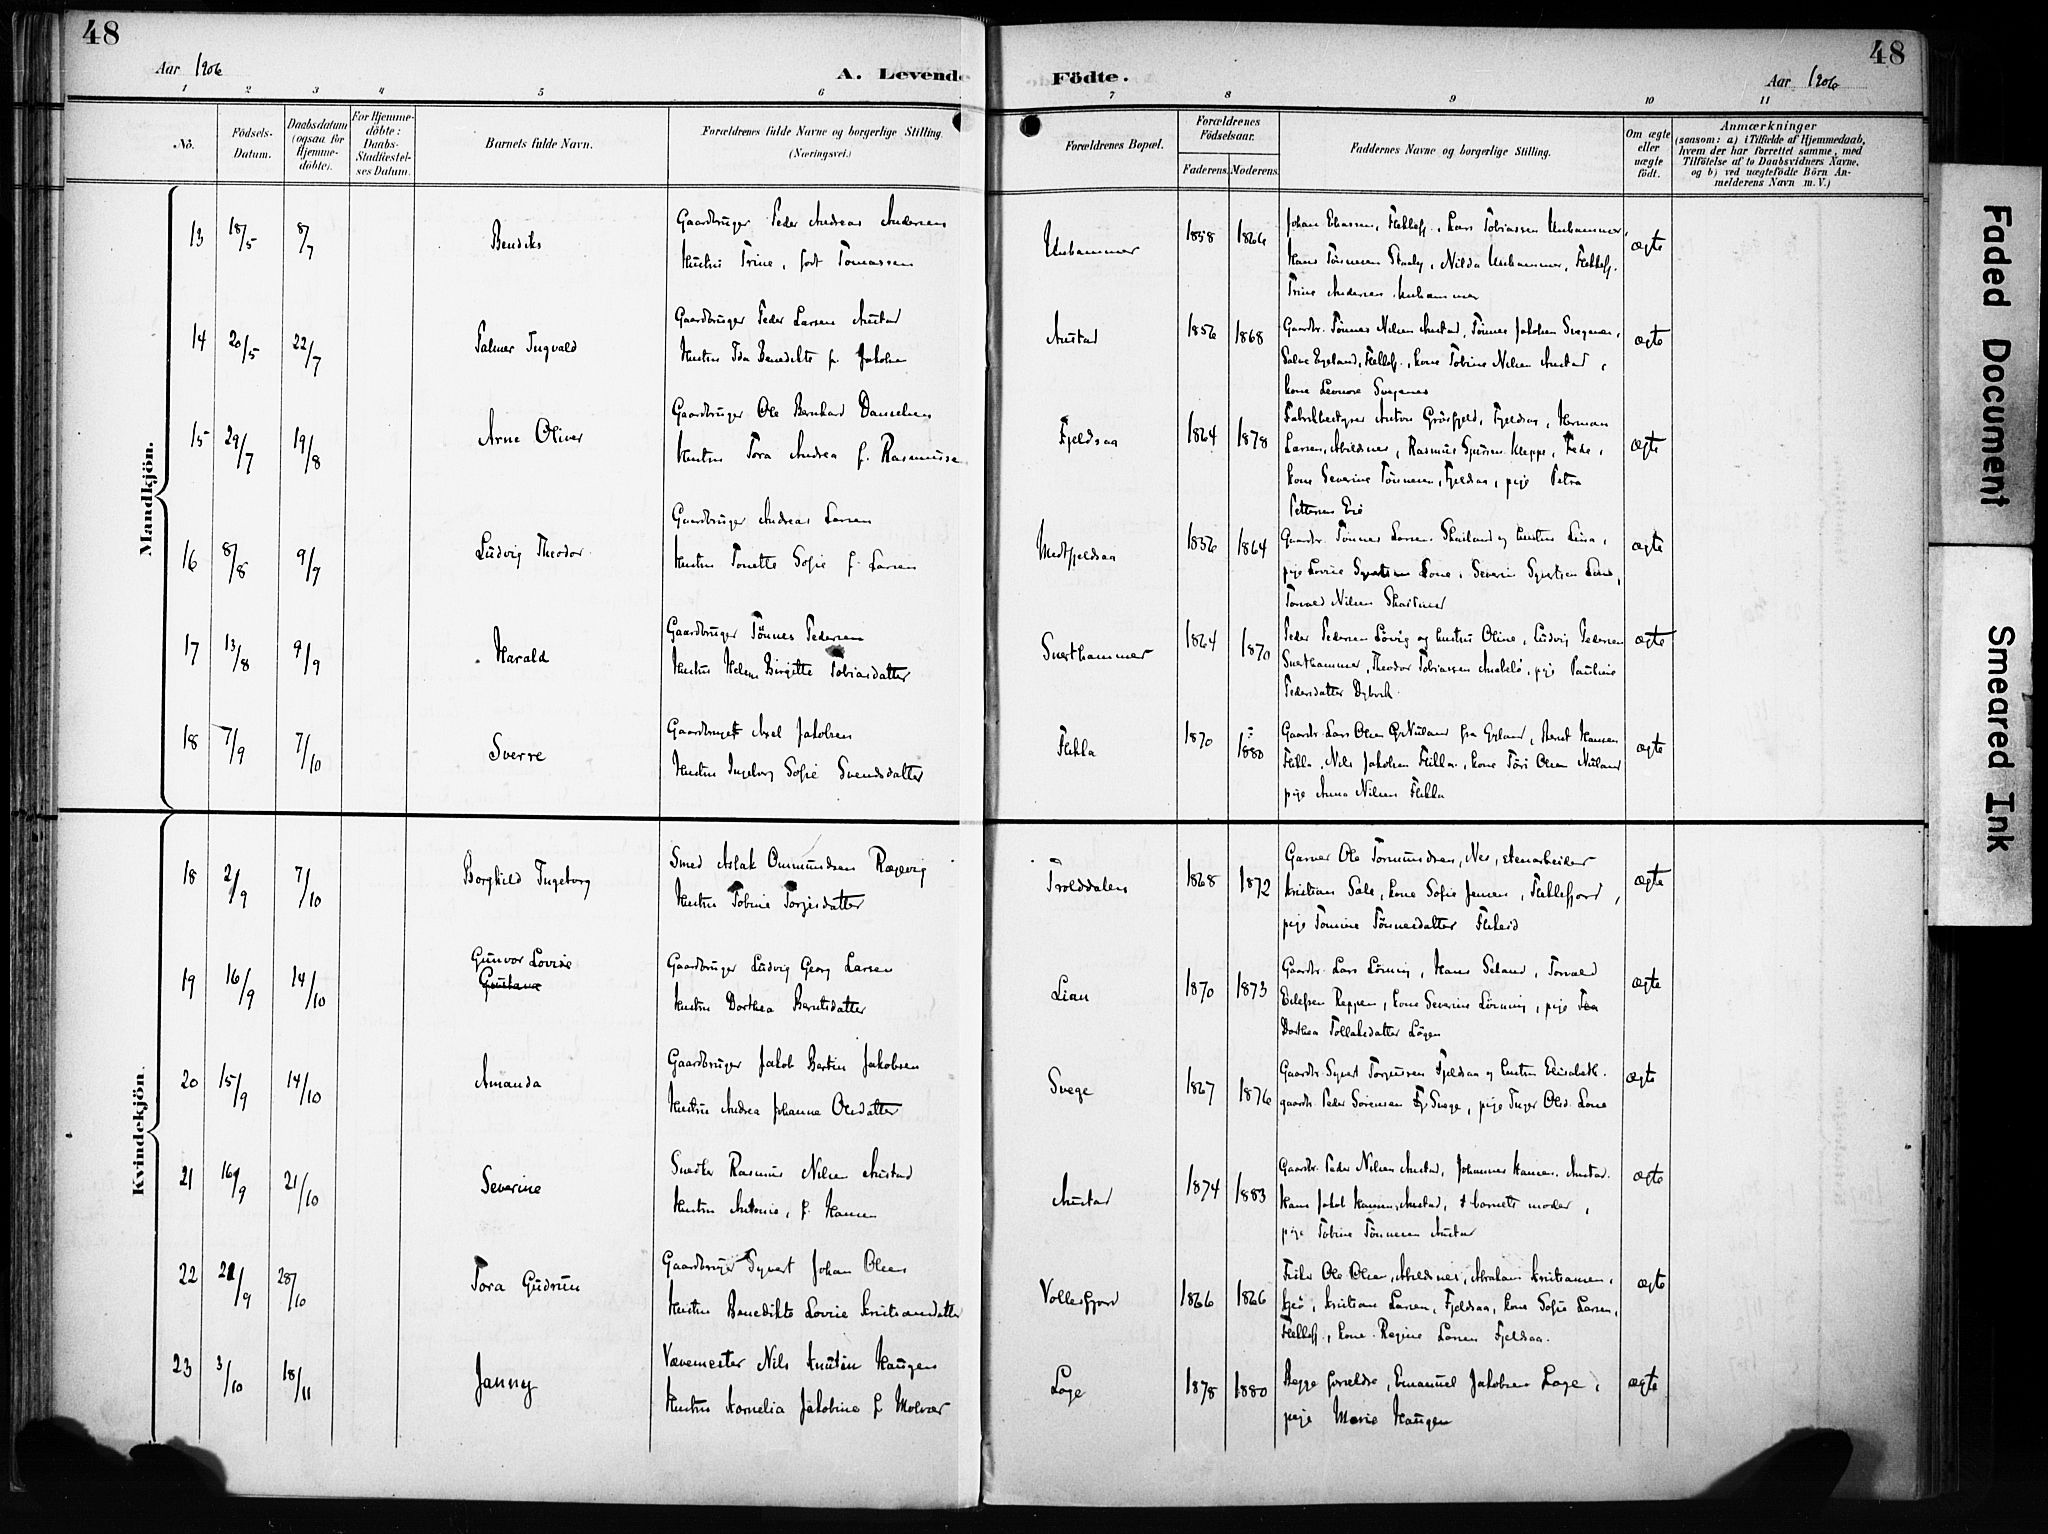 48
48
Aar 1906
A. Levende Födte.
Aar 1906
1 2 3 4 5 6 7 8 9 10 11
Nò.
Födsels-Datum.
Daabsdatum (ogsaa för Hjemmedöbte).
For Hjemmedöbte: Daabs-Stadfæstelses Datum.
Barnets fulde Navn.
Forældrenes fulde Navne og borgerlige Stilling. (Næringsvei.)
Forældrenes Bopæl.
Forældrenes Födselsaar.
Faderens. Moderens.
Faddernes Navne og borgerlige Stilling.
Om ægte eller uægte födt.
Anmærkninger
(saasom: a) i Tilfælde af Hjemmedaab, hvem der har forrettet samme, med Tilföielse af to Daabsvidners Navne, og b) ved uægtefödte Börn Anmelderens Navn m.V.)
Mandkjön.
13 18/5 8/7 Bendiks
Gaardbruger Peder Andreas Andersen
Hustru Trine, født Tomassen
Unhammer 1858 1866
Johan Eliassen, Flekkefj., Lars Tobiassen Unhammer,
Hans Tönnesen Staaby, Nilda Unhammer, Flekkefj.
Trine Andersen Unhammer
ægte
14 20/5 22/7 Palmer Ingvald
Gaardbruger Peder Larsen Austad
Hustru Ida Benedikte f. Jakobsen
Austad 1856 1868
Gaardbr. Tönnes Nilsen Austad, Tönnes Jakobsen Svegenes,
Salve Egeland, Flekkefj., kone Tobine Nilsen Austad,
kone Leonore Svegenes
ægte
15 29/7 19/8 Arne Oliver
Gaardbruger Ole Bernhard Danielsen
Hustru Tora Andrea f. Rasmussen
Fjeldsaa 1864 1878
Fabrikbestyrer Anton Grösfjeld, Fjeldsaa, Herman
Larsen, Abeldsnes, Rasmus Sjursen Kleppe, Fede,
kone Severine Tönnesen, Fjeldsaa, pige Petra
Pettersen
ægte
16 8/8 9/9 Ludvig Theodor
Gaardbruger Andreas Larsen
Hustru Tonette Sofie f. Larsen
Medfjeldsaa 1856 1864
Gaardbr. Tönnes Larsen Skailand og hustru Lina,
pige Lovise Syvertsen Lone, Severin Syvertsen Lone,
Torvald Nilsen
ægte
17 13/8 9/9 Harald
Gaardbruger Tönnes Pedersen
Hustru Helene Birgitte Tobiasdatter
Sverthammer 1864 1870
Peder Pedersen Lövig og hustru Oline, Ludvig Pedersen
Sverthammer, Theodor Tobiassen Anabelö, pige Pauline
Pedersdatter Dybvik
ægte
18 7/9 7/10 Sverre
Gaardbruger Axel Jakobsen
Hustru Ingeborg Sofie Svendsdatter
Flikka 1870 1880
Gaardbr. Lars Olsen Nuland fra Gyland, Bernt Hansen
Flikka, Nils Jakobsen Flikka, kone Töri Olsen Nuland
pige Anna Nilsen Flikka
ægte
Kvindekjön.
18 2/9 7/10 Borghild Ingeborg
Smed Aslak Ommundsen Rægevig
Hustru Tobine Torjesdatter
Trolddalen 1868 1872
Garver Ole Tormundsen, Nes, stenarbeider
Kristian Sale, kone Sofie Jensen, Flekkefjord,
pige Tomine Tönnesdatter Flikeid
ægte
19 16/9 14/10 Gunvor Lovise
Gustava
Gaardbruger Ludvig Georg Larsen
Hustru Dorthea Berntsdatter
Lian 1870 1873
Gaardbr. Lars Lönning, Hans Seland, Torvald
Eilefsen Reppen, kone Severine Lönning, pige Tea
Dorthea Tollaksdatter Lögen
ægte
20 15/9 14/10 Amanda
Gaardbruger Jakob Bertin Jakobsen
Hustru Andrea Johanne Olsdatter
Svege 1867 1876
Gaardbr. Syvert Torgersen Fjeldsaa og hustru Elisabeth.
gaardbr. Peder Sörensen Svege, pige Inger Olsd. Lone
ægte
21 16/9 21/10 Severine
Snedker Rasmus Nilsen Austad
Hustru Antonie, f. Hansen
Austad 1874 1883
Gaardbr. Peder Nilsen Austad, Johannes Hansen Austad.
Hans Jakob Hansen, Austad, & barnets moder,
pige Tobine Tönnesen Austad
ægte
22 21/9 28/10 Tora Gudrun
Gaardbruger Syvert Johan Olsen
Hustru Benedikte Lovise Kristiansdatter
Vollesfjord 1866 1866
Fisker Ole Olsen, Abeldsnes, Abraham Kristiansen,
Kristian Larsen, Fjeldsaa, kone Sofie Larsen,
Flekkefj., kone Regine Larsen Fjeldsaa.
ægte
23 3/10 18/11 Janny
Vævemester Nils Knutsen Haugen
Hustru Kornelia Jakobine f. Molvær
Loge 1878 1880
Begge forældre, Emanuel Jakobsen Loge,
pige Marie Haugen
ægte
Faded Document
Smeared Ink